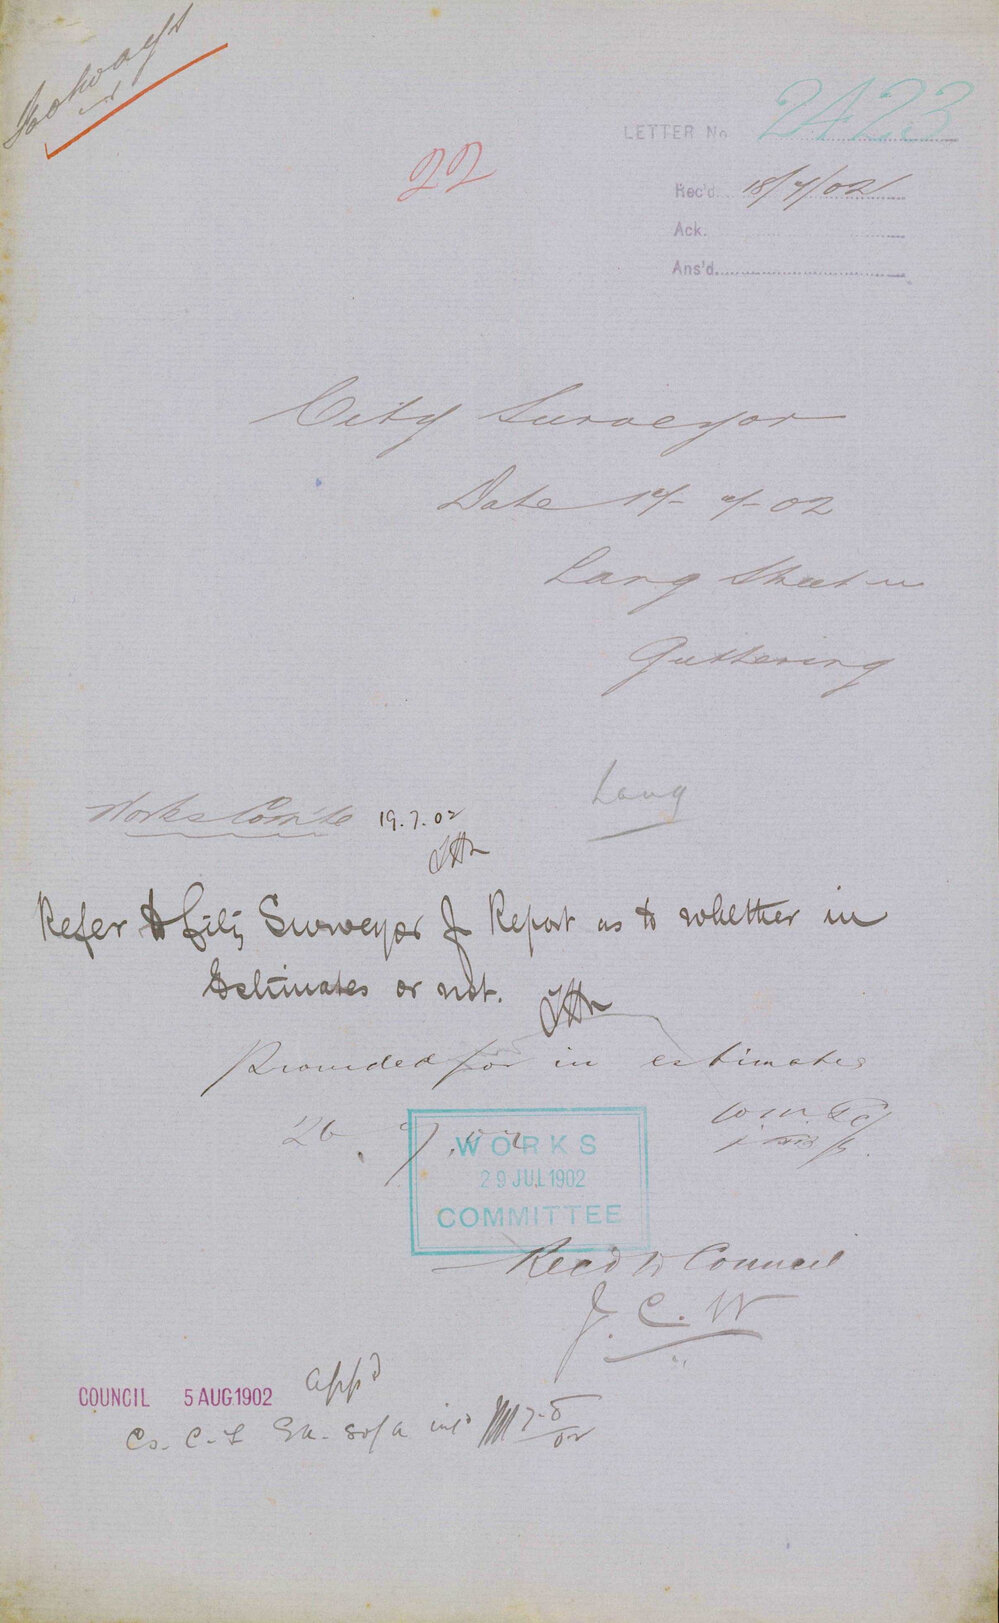 Footways
22
LETTER No 2423
Rec'd. 18/7/02
Ack.
Ans'd.
City Surveyor
Date 17-7-02
Lang Street
Guttering
Lang
Works Com'te 19.7.02
Refer to City Surveyor for Report as to whether in
Estimates or not.
Provided for in estimates
26.7.02
WORKS
29 JUL 1902
COMMITTEE
Recd to Council
J.C.W
COUNCIL 5 AUG 1902 app'd
7-8/02